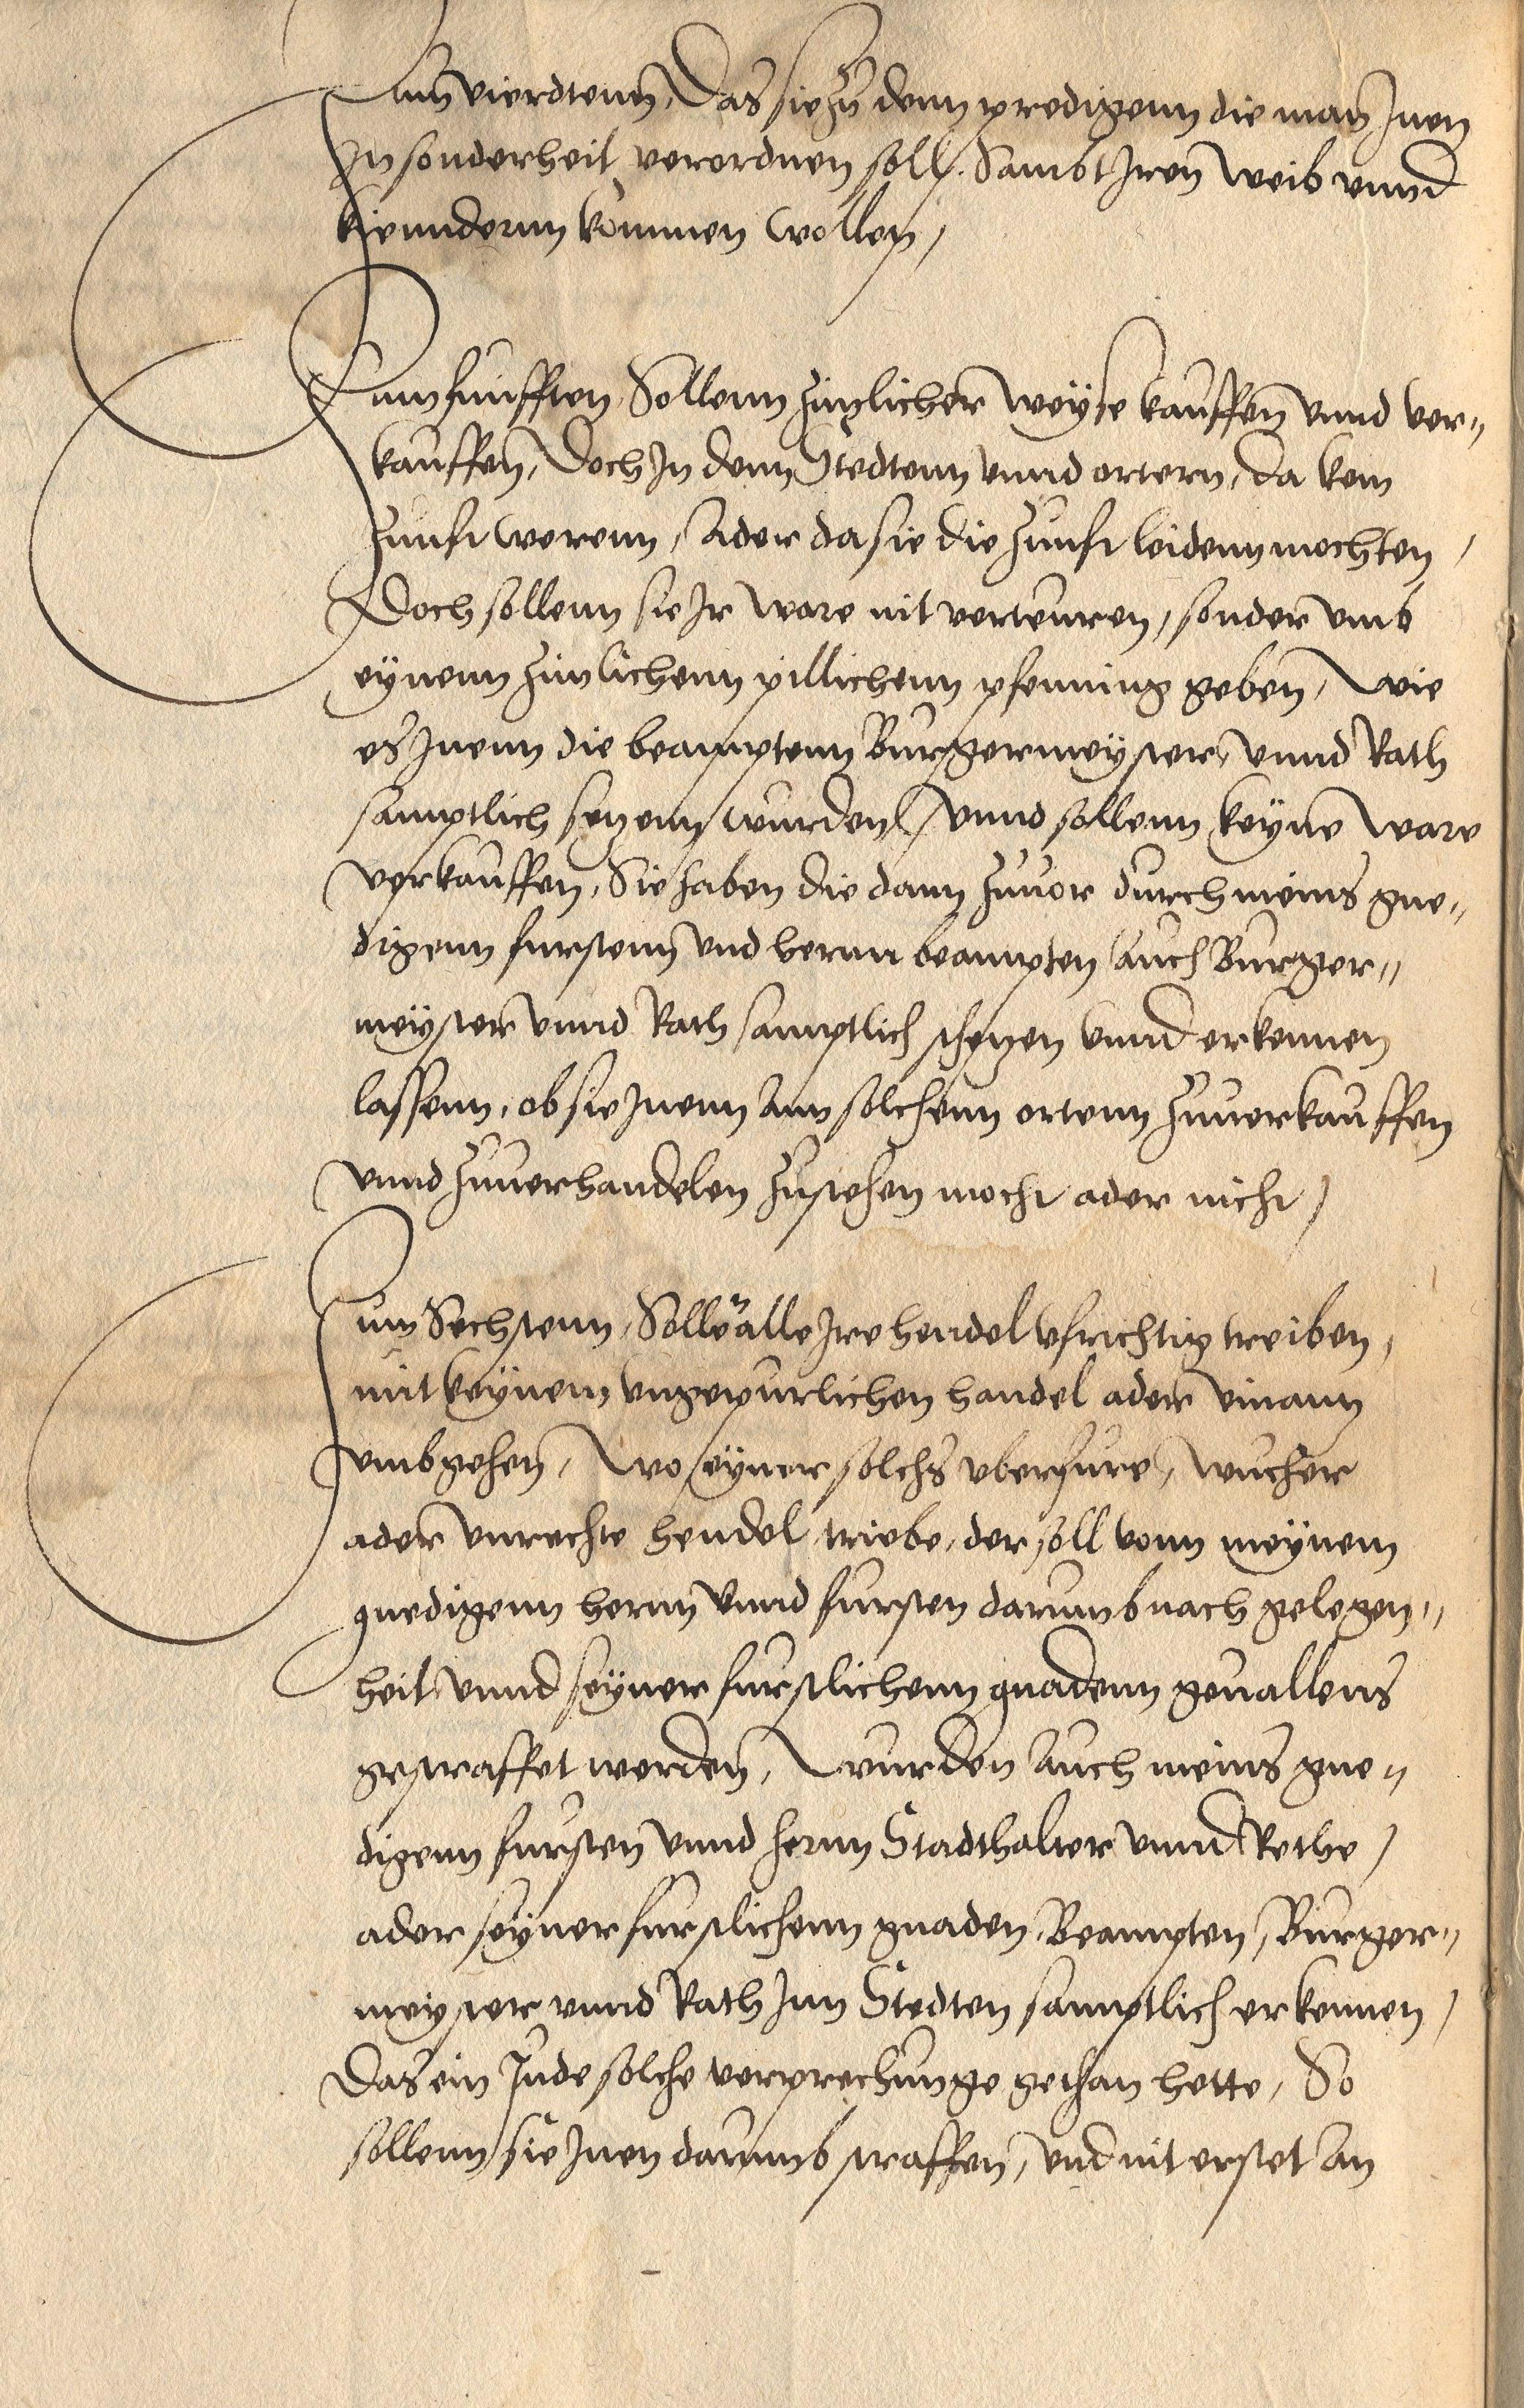 Zum vierdtenn, Das sie zu denn predigenn die man Inen
In sonderheit verordnen soll, Sambt Iren weib vnnd
kienndernn kommen wollen,
Zum funfften, Sollenn zimlicher weyse kauffen vnnd ver„
kauffen, Doch In denn Stedtenn vnnd ortern, da kein
Zunfft werenn, Ader da sie die Zunfft leidenn mochten,
Doch sollenn sie Ir ware nit verteuren, sonder vmb
eynenn zimlichenn pillichenn pfenning geben, Wie
es Inenn die beamptenn Burgermeyster, vnnd Rath
samptlich setzenn wurden, Vnnd sollenn keyne ware
verkauffen, Sie haben die dann zuuor durch meins gne„
digenn furstenn vnd hernn beampten Auch Burger„
meyster vnnd Rath samptlich schetzen vnnd erkennen
lassenn, ob sie Inenn Ann solchenn ortenn zuuerkauffen
vnnd zuuerhandelen zustehen mocht ader nicht,
Zum Sechstenn, Sollen alle Ire hendel vfrichtig treiben,
mit keynem vngepurlichen handel ader finantz
vmbgehen, Wo eyner solchs vberfure, wucher
ader vnrechte hendel triebe, der soll vonn meynem
gnedigenn hernn vnnd fursten darumb nach gelegen„
heit, vnnd seyner furstlichenn gnadenn geuallens
gestraffet werden, Wurden Auch meins gne„
digenn fursten vnnd hernn Stadthalter vnnd Rethe,
ader seyner furstlichenn gnaden, Beampten, Burger„
meyster vnnd Rath Inn Stedten samptlich erkennen,
Das ein Jude solche verprechunge gethan hette, So
sollenn sie Inen darumb straffen, vnd nit erstet An